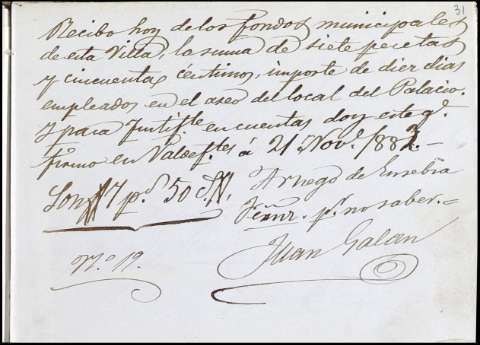 31
Recibo hoy de los fondos municipales
de esta Villa, la suma de siete pecetas
y cincuenta céntimos, importe de diez dias
empleados en el aseo del local del Palacio.
Y para Justifte. en cuentas doy este qe.
firmo en Valdeftes. á 21 Nove. 1882. –
Son 7 ps. 50 c.
Arruego de Eusebia
pr. no saber. =
Juan Galan
No. 19.